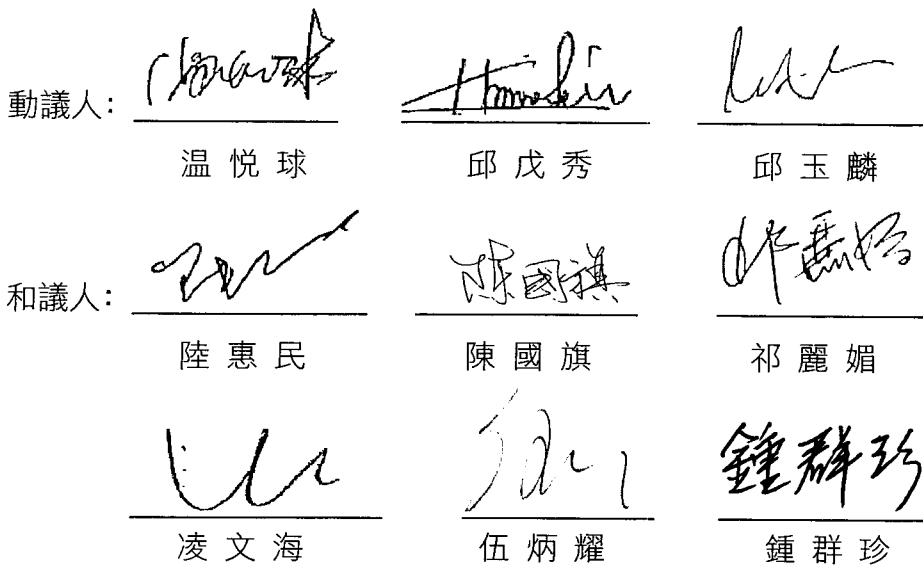 動議人:
温悦球 邱戊秀 邱玉麟
和議人: 陳國旗 祁麗媚
陸惠民 陳國旗 祁麗媚
鍾群珍
凌文海 伍炳耀 鍾群珍